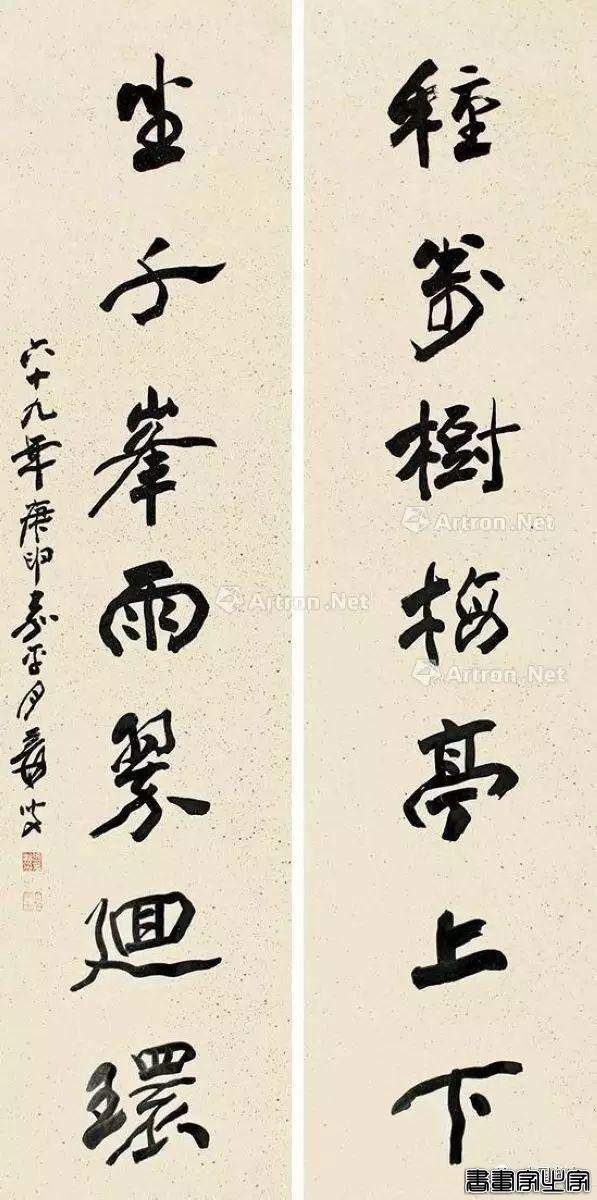 種萬樹梅亭上下
坐千峯雨翠廻環
六十九年庚申嘉平月爰叟
Artron.Net
Artron.Net
Artron.Net
書畫家之家